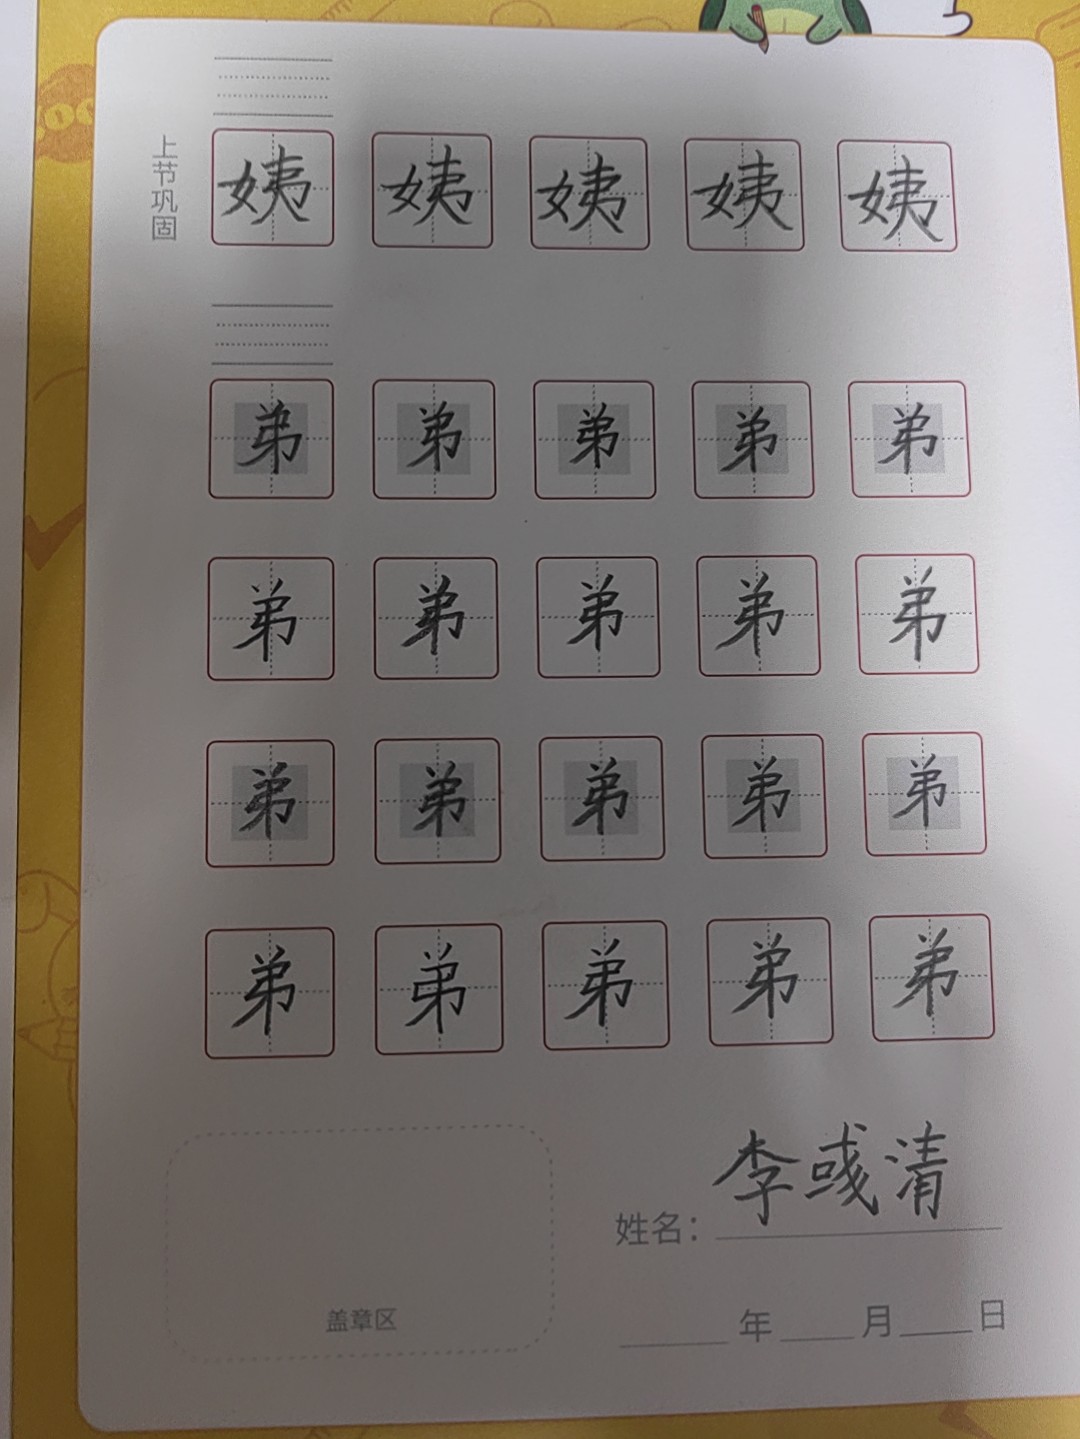 上节巩固
姨 姨 姨 姨 姨
弟 弟 弟 弟 弟
弟 弟 弟 弟 弟
弟 弟 弟 弟 弟
弟 弟 弟 弟 弟
姓名：李彧清
盖章区
年 月 日